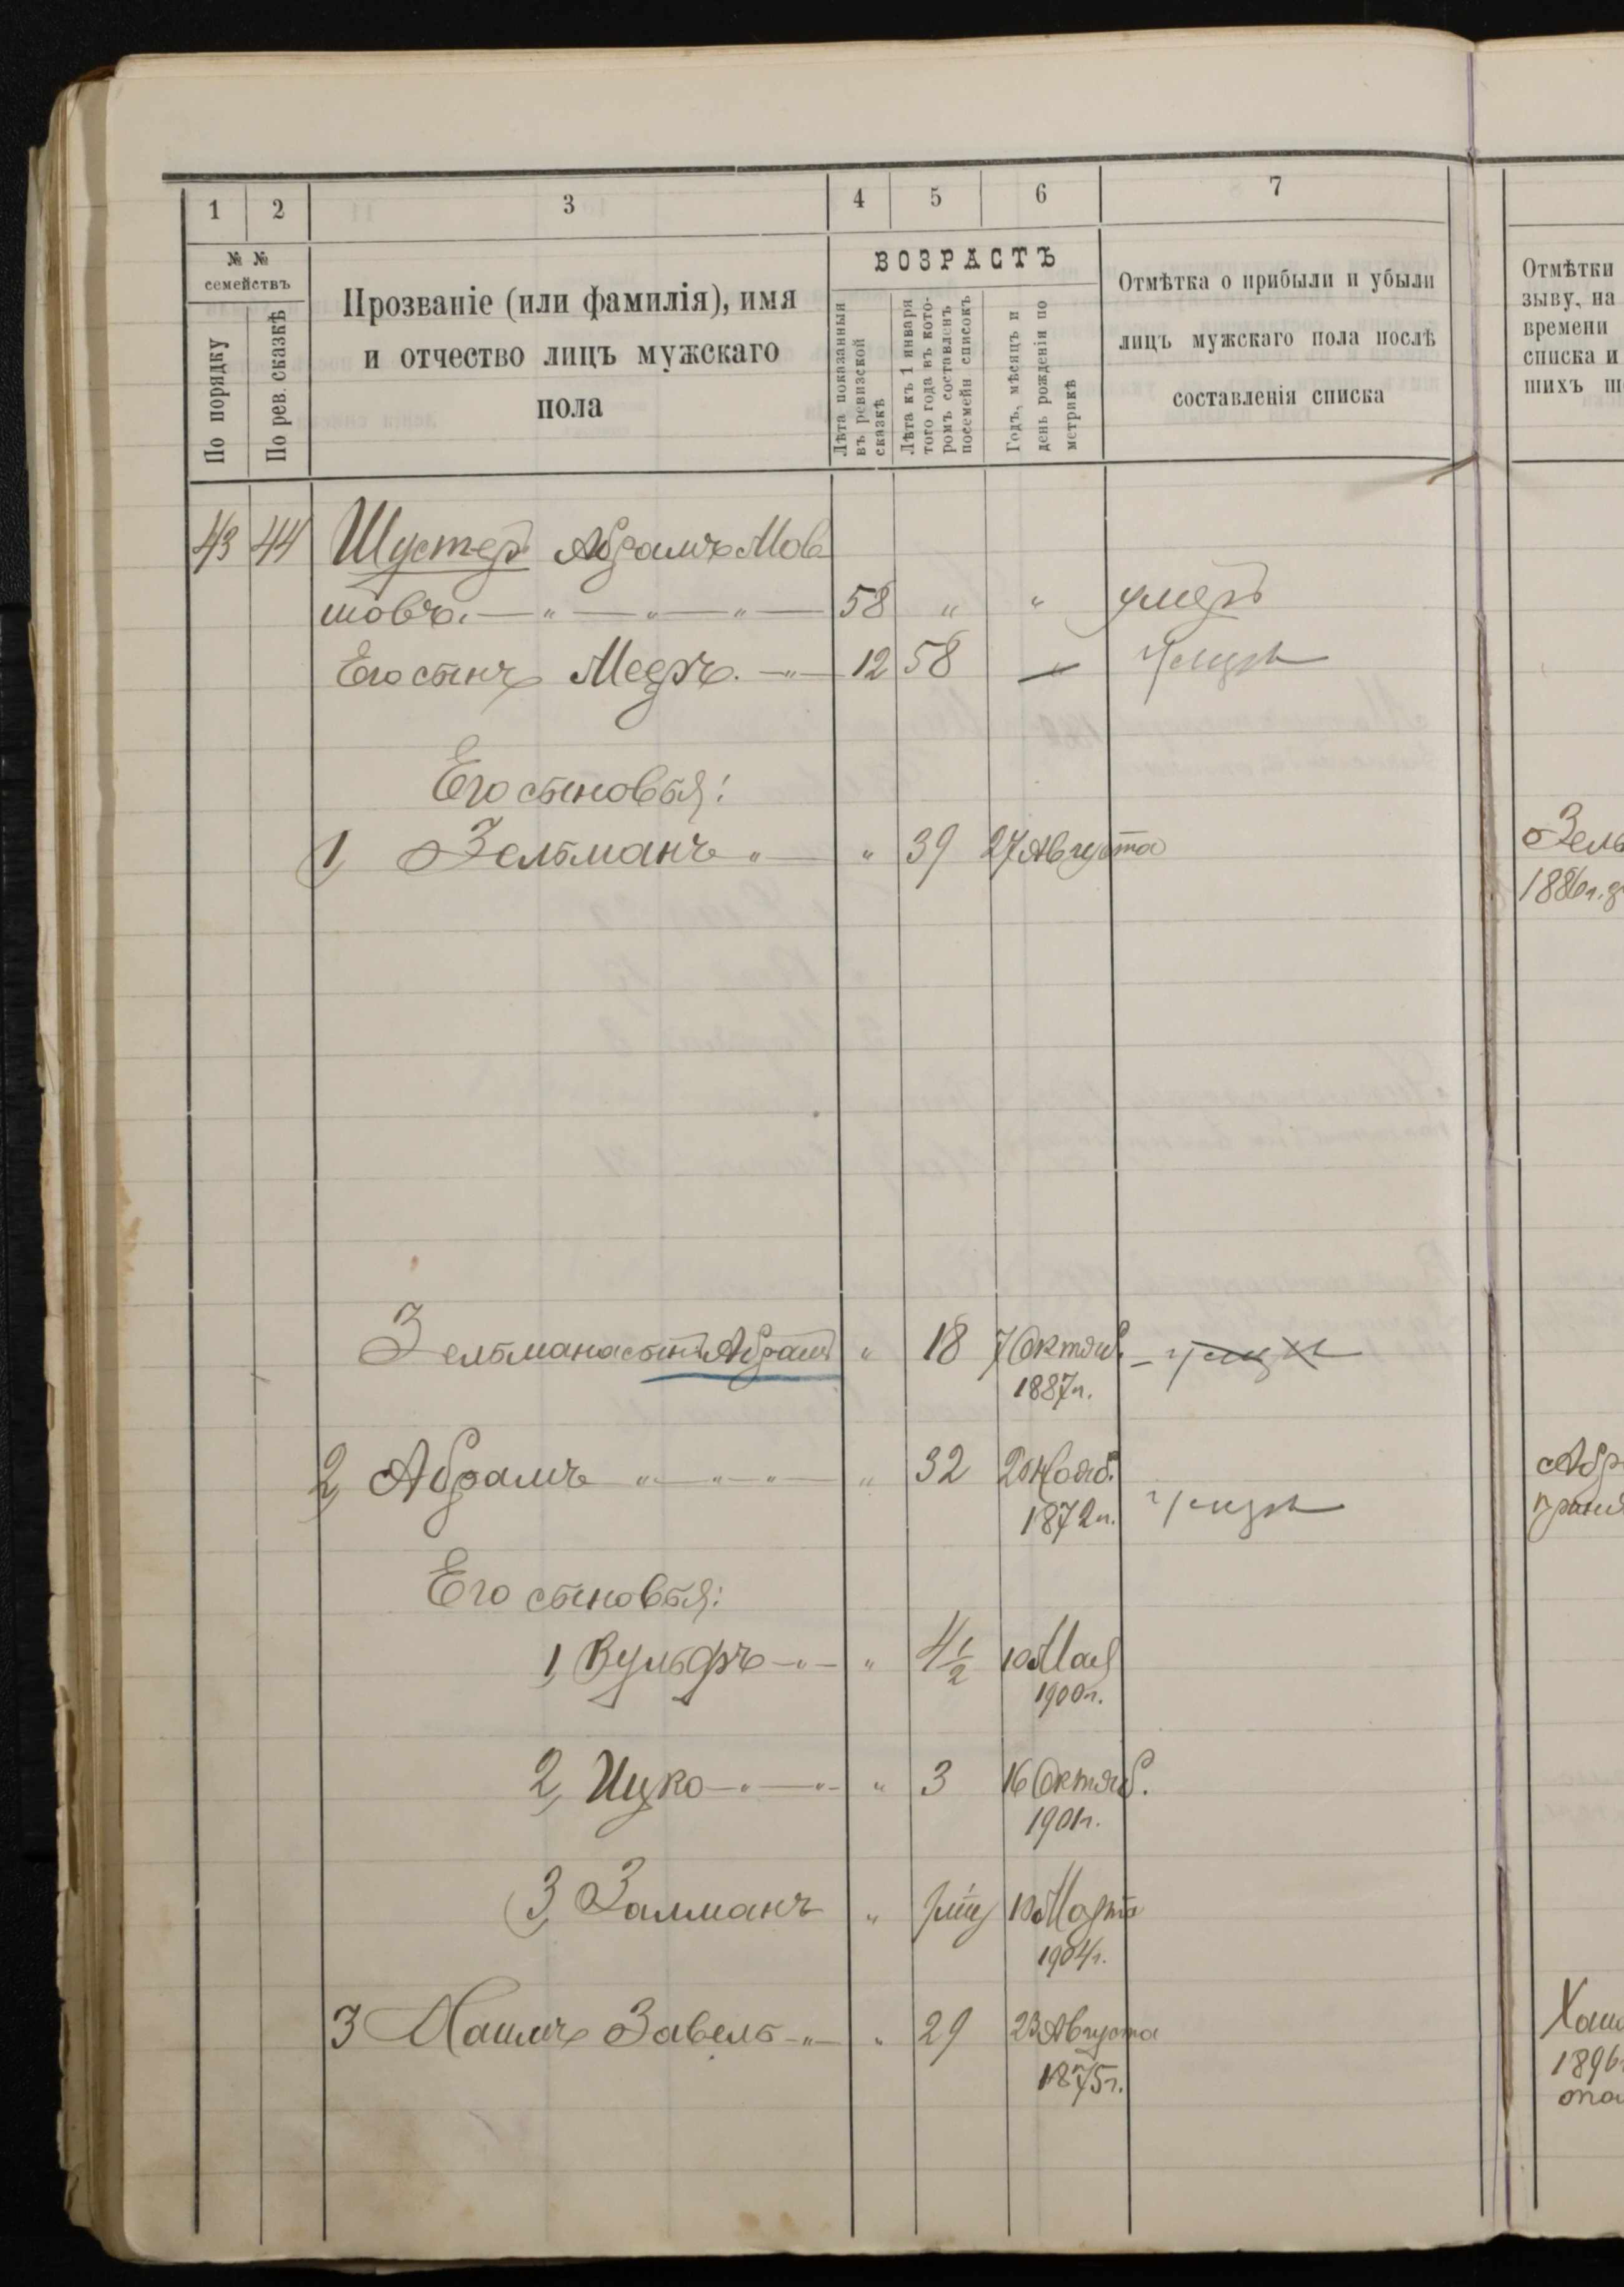 1 2 3 4 5 6 7
№ №
семействъ
По порядку
По рев. сказкѣ
Прозваніе (или фамилія), имя
и отчество лицъ мужскаго
пола
ВОЗРАСТЪ
Лѣта показанныя
въ ревизской
сказкѣ
Лѣта къ 1 января
того года въ кото-
ромъ составленъ
посемейн списокъ
Годъ, мѣсяцъ и
день рожденія по
метрикѣ
Отмѣтка о прибыли и убыли
лицъ мужскаго пола послѣ
составленія списка
Отмѣтки
зыву, на
времени
списка и
шихъ
43 44 Шустеръ Абрамъ Мов
шовъ. — " — " — " — 58 " " умеръ
Его сынъ Мееръ. — " — 12 58 — умеръ
Его сыновья:
1, Зельманъ " — " 39 27 Августа
Зель
1886 г.
Зельмана сынъ Абрамъ " 18 7 Октяб.
1887 г.
2, Абрамъ " — " — " — " 32 20 Нояб.
1872 г. умеръ
Абр
Его сыновья:
1, Вульфъ — " — " 4 1/2 10 Мая
1900 г.
2, Ицко — " — " — " 3 16 Октяб.
1901 г.
3, Залманъ " 10 Марта
1904 г.
3 Хаимъ Завель — " — " 29 23 Августа
1875 г.
Хаим
1896